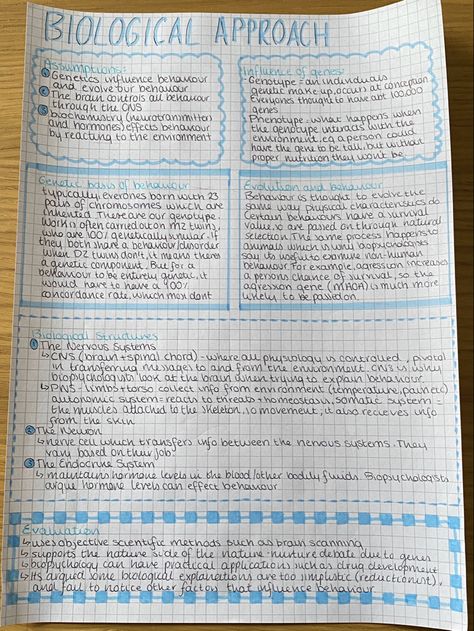 BIOLOGICAL APPROACH
Assumptions:
① Genetics influence behaviour
and evolve our behaviour
② The brain controls all behaviour
through the CNS
③ biochemistry (neurotransmitters
and hormones) effects behaviour
by reacting to the environment
Influence of genes:
Genotype = an individuals
genetic make-up, occurs at conception
Everyones thought to have abt 100,000
genes
Phenotype = what happens when
the genotype interacts with the
environment, e.g a person could
have the gene to be tall, but without
proper nutrition they won't be
Genetic basis of behaviour
Typically, everyones born with 23
pairs of chromosomes which are
inherited. These are our genotype.
Work is often carried out on MZ twins,
who are 100% genetically similar. If
they both share a behaviour/disorder
when DZ twins don't, it means theres
a genetic component. But for a
behaviour to be entirely genetic, it
would have to have a 100%
concordance rate, which most dont
Evolution and behaviour
Behaviour is thought to evolve the
same way physical characteristics do.
Certain behaviours have a survival
value, so are passed on through natural
selection. The same process happens to
animals which is why biopsychologists
say its useful to examine non-human
behaviour. For example, agression increases
a persons chance of survival, so the
agression gene (MAOA) is much more
likely to be passed on.
Biological Structures
① The Nervous Systems
↳ CNS (brain + spinal chord) - where all physiology is controlled, pivotal
in transferring messages to and from the environment. CNS is why
biopsychologists look at the brain when trying to explain behaviour
↳ PNS - limbs + torso collect info from environment (temperature, pain etc)
Autonomic system = reacts to threats + homeostasis, somatic system =
the muscles attached to the skeleton, ie movement, it also recieves info
from the skin
② The Neuron
↳ nerve cell which transfers info between the nervous systems. They
vary based on their job
③ The Endocrine System
↳ maintains hormone levels in the blood/other bodily fluids. Biopsychologists
argue hormone levels can effect behaviour
Evaluation
↳ uses objective scientific methods such as brain scanning
↳ supports the nature side of the nature-nurture debate due to genes
↳ biopsychology can have practical applications such as drug development
↳ Its argued some biological explanations are too simplistic (reductionist),
and fail to notice other factors that influence behaviour